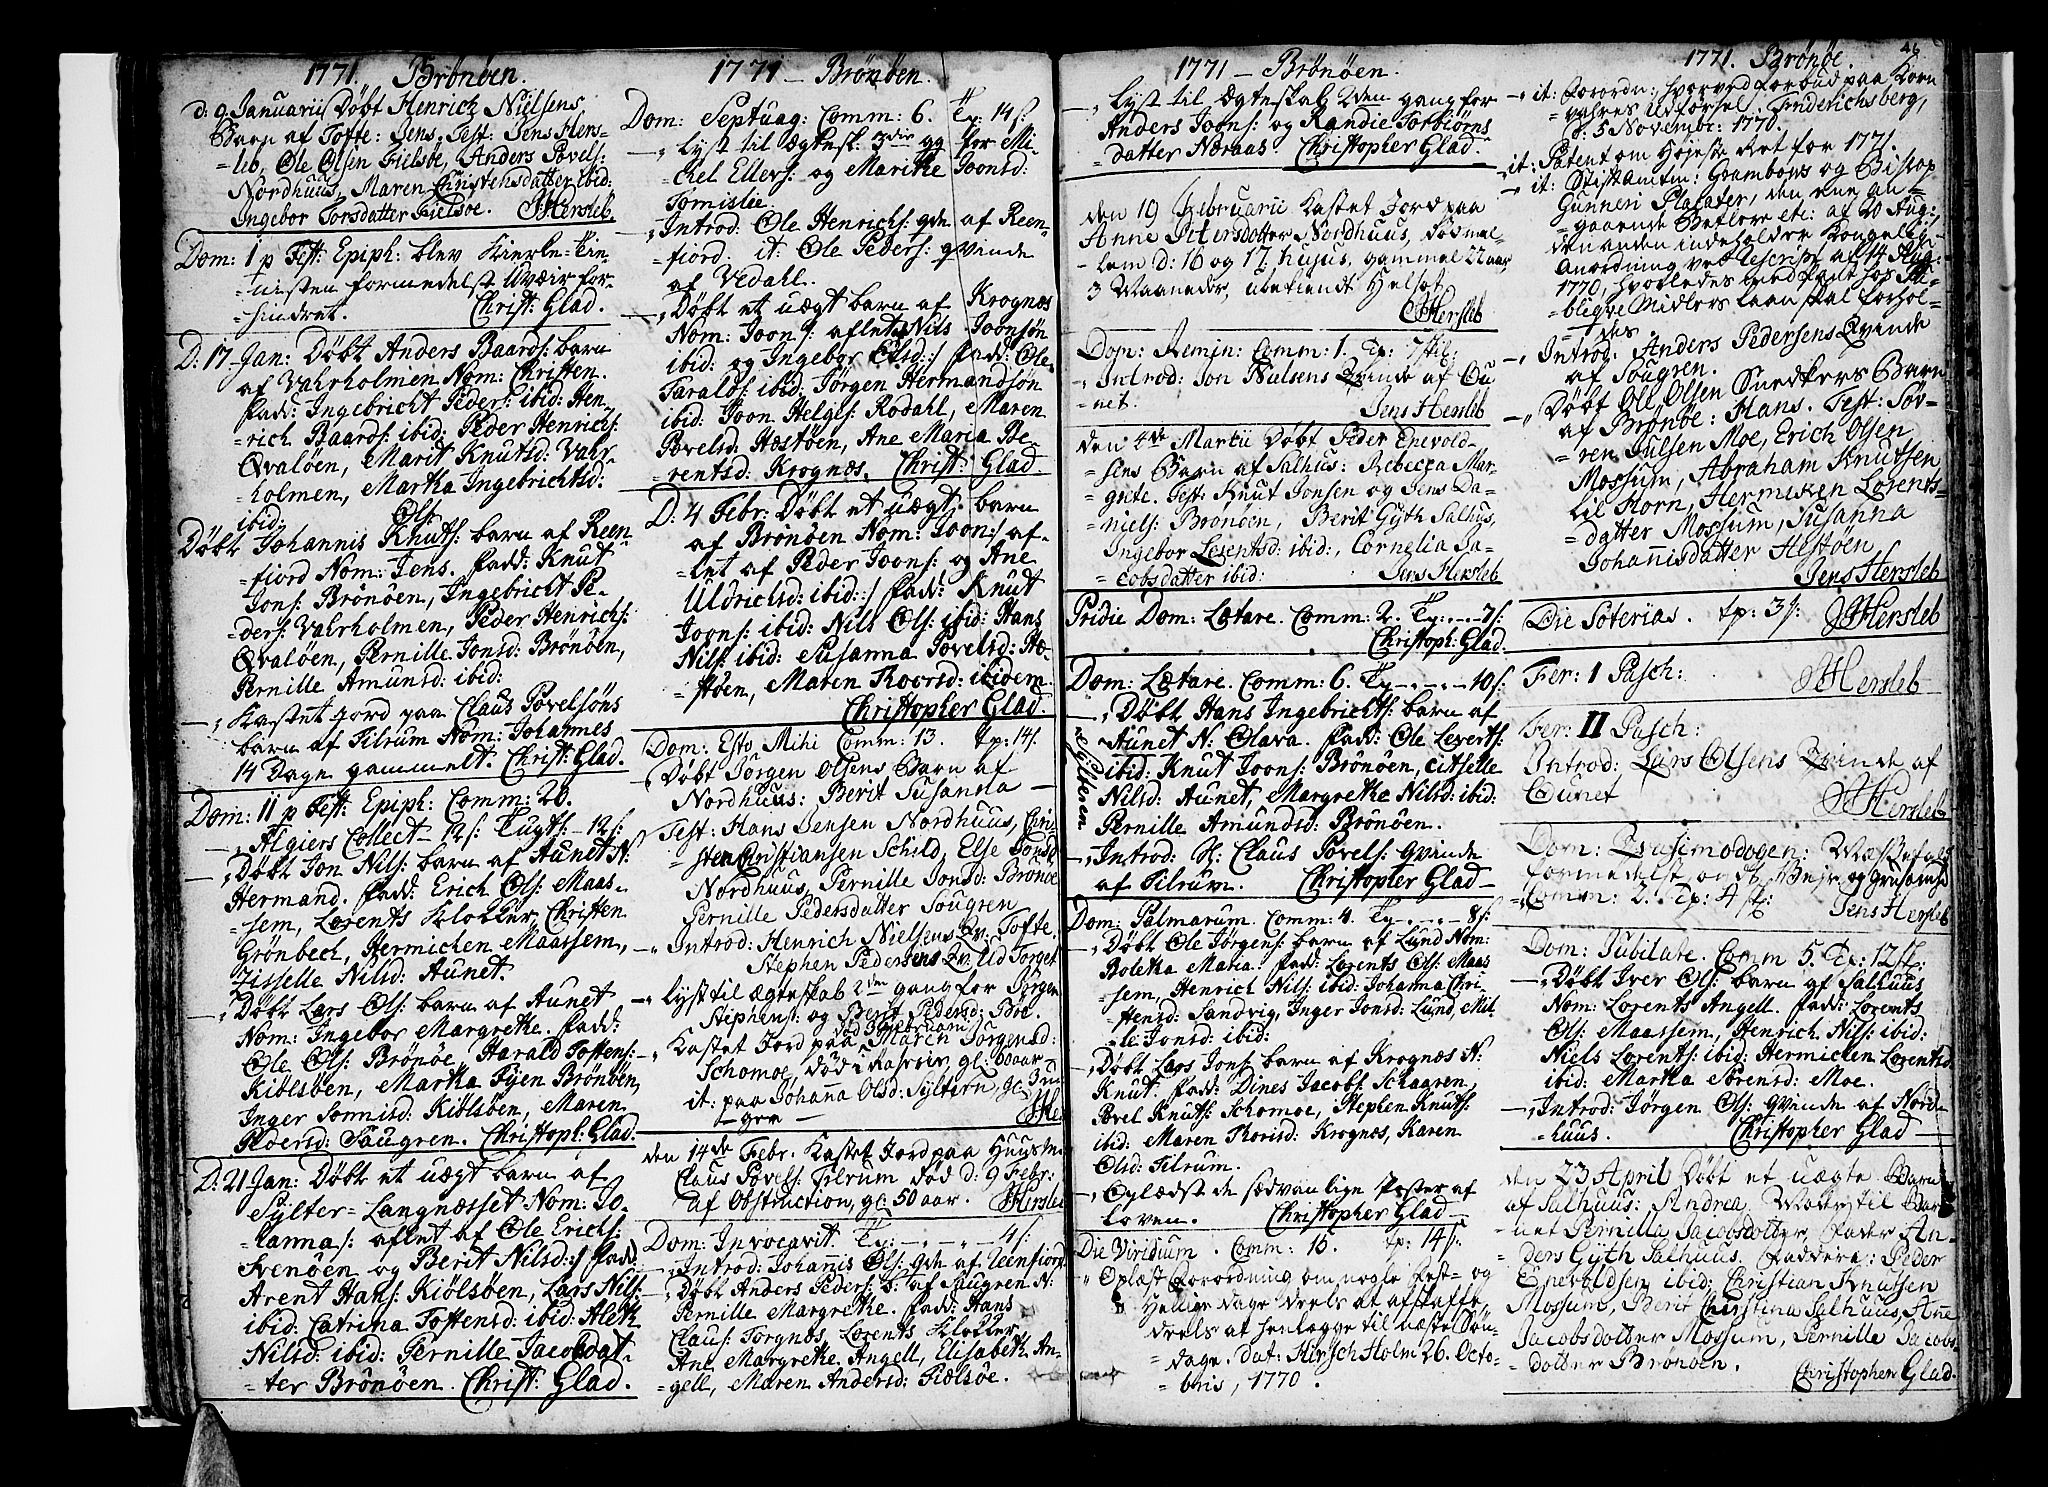 1771. Brønøen.
d: 9 Januarii Døbt Henrich Nielsens
Barn af Tofte: Jens. Test: Jens Hers-
leb, Ole Olsen Fielsøe, Anders Povels:
Nordhuus, Maren Christensdatter ibid:
Ingebor Torsdatter Fielsøe. JHersleb
Dom: 1 p Fest: Epiph: blev Kierke-Tie-
nisten formedelst Uvæir for-
hindret. Christ: Glad.
D: 17 Jan: Døbt Anders Baards: barn
af Vahrholmen Nom: Christen.
fadd: Ingebricht Peders: ibid: Hen-
rich Baards: ibid: Peder Henrichs:
Qvaløen, Marit Knutsd: Vahr-
holmen, Martha Ingebrichtsd:
ibid: Ols:
Døbt Johannis Knuts: barn af Reen-
fiord Nom: Jens. fadd: Knut
Jons: Brønøen, Ingebricht Pe-
ders: Vahrholmen, Peder Henrichs:
Qvaløen, Pernille Jonsd: Brønøen,
Pernille Amunsd: ibid:
-, Kastet jord paa Claus Povelsøns
barn af Tilrum Nom: Johannes
14 Dage gammelt. Christ: Glad.
Dom: II p Fest: Epiph: Comm: 20.
-, Algiers Collect - 12 s: Tugts - 12 s:
-, Døbt Jon Nils: barn af Aunet N:
Hermand. fadd: Erich Ols: Maas-
sem, Lorents Klokker, Christen
Grønbech, Hermichen Maassem,
Zisselle Nilsd: Aunet.
-, Døbt Lars Ols: barn af Aunet
Nom: Ingebor Margrethe. fadd:
Ole Ols: Brønøe, Harald Toftens:
Kiølsøen, Martha Fyen Brønøen,
Inger Tonnisd: Kiølsøen, Maren
Pedersd: Saugren. Christoph: Glad.
D: 21 Jan: Døbt et uægt barn af
Sylter-Langnæsset Nom: Jo-
hanna /: aflet af Ole Erichs:
Svenøen og Berit Nilsd: / fadd:
Arent Hans: Kiølsøen, Lars Nils:
ibid: Catrina Toftensd: ibid: Aleth
Nilsd: ibid: Pernille Jacobdat-
ter Brønøen. Christ: Glad.
1771 - Brønøen.
Dom: Septuag: Comm: 6. Tp: 14 s:
-, lyst til Ægtesk: 3die gg for Mi-
chel Ellers: og Marithe Joonsd:
Tomislie.
-, Introd: Ole Henrichs: qde af Reen-
fiord. it: Ole Peders: qvinde
af Vedahl.
-, Døbt et uægt barn af Krognæs
Nom: Joon /: aflet af Nils Joonsøn
ibid: og Ingebor Olsd: / fadd: Ole
Taralds: ibid: Jørgen Hermandsøn
ibid: Joon Helges: Rodahl, Maren
Povelsd: Hæstøen, Ane Maria Be-
rentsd: Krognæs. Christ: Glad
D: 4 Febr: Døbt et uægt barn
af Brønøen Nom: Joon: / af-
let af Peder Joons: og Ane
Uldrichsd: ibid: / fadd: Knut
Joons: ibid: Nils Ols: ibid: Hans
Nils: ibid: Susanna Povelsd: Hæ-
støen, Maren Roorsd: ibidem
Christopher Glad.
Dom: Esto Mihi Comm: 13. Tp: 14 s.
-, Døbt Jørgen Olsens Barn af
Nordhuus: Berit Susanna -
Test: Hans Jensen Nordhuus, Chri-
sten Christiansen Schild, Else Jonsd:
Nordhuus, Pernille Jonsd: Brønøe
Pernille Pedersdatter Sougren
-, Introd: Henrich Nielsens Qv: Tofte.
Stephen Pedersens Qv: Uid Torget
-, lyst til ægteskab 2den gang for Jørgen
Stephens: og Berit Pedersd: Bøe.
-, Kastet Jord paa Maren Jørgensd:
Schomoe,
it: paa Johana Olsd: Sylteren, gl: 3 u-
ger - JHe
den 14de Febr. Kastet Jord paa Huusm.
Claus Povels: Tilrum død d: 9 Febr:
af Obstruction, gl: 50 aar. JHersleb
Dom: Invocavit Tp: - - - 4 s:
-, Introd: Johannis Ols: qde af Reenfiord
-, Døbt Anders Peders: b: af Saugren N:
Pernille Margrethe. fadd: Hans
Claus: Torgnæs, Lorents Klokker,
Ane Margrethe Angell, Elisabeth An-
gell, Maren Andersd: Fiælsøe.
1771 - Brønøen.
-, lyst til Ægteskab 2den gang for
Anders Joons: og Randie Torbiørns
datter Næraas Christopher Glad.
den 19 Februarii Kastet Jord paa
Anne Pedersdatter Nordhuus, død mel-
lem d: 16 og 17. hujus, gammel 22 aar
3 Maaneder, ubekiendt Helsot.
JHersleb
Dom: Remin: Comm: 1. Tp: 7 s til:
-, Introd: Jon Nielsens Qvinde af Ou-
net. Jens Hersleb
den 4de Martii Døbt Peder Enevold-
sens Barn af Salhus: Rebecca Mar-
grete. Test: Knut Jonsen og Jens Da-
niels: Brønøen, Berit Gyth Salhus,
Ingebor Lorentsd: ibid:, Cornelia Ja-
cobsdatter ibid: Jens Hersleb
Pridie Dom: Lætare. Comm: 2. Tp: - - - 7 s:
Christoph: Glad.
Dom: Lætare. Comm: 6. Tp: - - - 10 s:
-, Døbt Hans Ingebrichts: barn af
Aunet N: Olava. fadd: Ole Leverts:
ibid: Knut Joons: Brønøen, Citselle
Nilsd: Aunet, Margrethe Nilsd: ibid:
Pernille Amundsd: Brønøen.
-, Introd: Sl: Claus Povels: qvinde
af Tilrum. Christopher Glad -
Dom: Palmarum. Comm: 4. Tp: - - - 8 s:
-, Døbt Ole Jørgens: barn af Lund Nom:
Boletha Maria. fadd: Lorents Ols: Maas
sem, Henrich Nils: ibid: Johanna Chri-
stensd: Sandvig, Inger Jonsd: Lund, Mil-
le Jonsd: ibid:
-, Døbt Lars Jons: barn af Krognæs N:
Knut. fadd: Dines Jacobs: Schaaren,
Povel Knuts: Schomoe, Stephen Knuts:
ibid: Maren Thorisd: Krognæs, Karen
Olsd: Tilrum.
-, Oplædst de sædvanlige Poster af
Loven. Christopher Glad -
Die Viridium. Comm: 16. Tp: 14 s:
-, Oplæst Forordning om nogle Fest- og
Hellige dage deels at afskaffe,
deels at henlægge til næste Søn-
dage. dat: Hirschholm 26. Octo-
bris, 1770.
46
1771. Brønøe.
-, it: Forordn: hvorved forbud paa Korn
vahres Udførsel. Friderichsberg,
d: 5 November: 1770.
it: Patent om Højeste Ret for 1771.
-, it: Stiftsamtm: Grambows og Biskop
Gunneri Plakater, den ene an-
gaaende Betlere etc: af 20 Aug:,
den anden indeholdte Kongelig
Anordning ved Rescript af 14 Aug:
1770, hvorledes med Pant hos Pu-
bliqve Midlers laan skal forhol-
des
-, Introd: Anders Pedersens Qvinde
af Sougren.
-, Døbt Ole Olsen Snedkers Barn
af Brønøe: Hans. Test: Søf-
ren Julsen Moe, Erich Olsen
Mossum, Abraham Knutsen
til Horn, Hermiken Lorents-
datter Mossum, Susanna
Johannisdatter Hestøen
Jens Hersleb
Die Soterias. Tp: 3 s: JHersleb
Fer: 1 Pasch: JHersleb
Fer: II Pasch:
Introd: Lars Olsens Qvinde af
Ounet JHersleb
Dom: Qvasimodogen:
-, Comm: 2. Tp: 4 s: Jens Hersleb
Dom: Jubilate. Comm 5. Tp: 12 s:
-, Døbt Iver Ols: barn af Salhuus
Nom: Lorents Angell. fadd: Lorents
Ols: Maassem, Henrich Nils: ibid:
Niels Lorents: ibid: Hermichen Lorentsd
ibid: Martha Sørensd: Moe.
-, Introd: Jørgen Ols: qvinde af Nord-
huus. Christopher Glad -
den 23 April Døbt et uægte Barn
af Salhuus: Andrea. Moder til Bar-
net Pernilla Jacobsdotter, Fader An-
ders Gyth Salhuus. Faddere: Peder
Enevoldsen ibid: Christian Knussen
Mossums, Berit Christina Salhuus, Anne
Jacobsdotter Mossum, Pernille Jacobs-
dotter Brønøen. Christopher Glad.